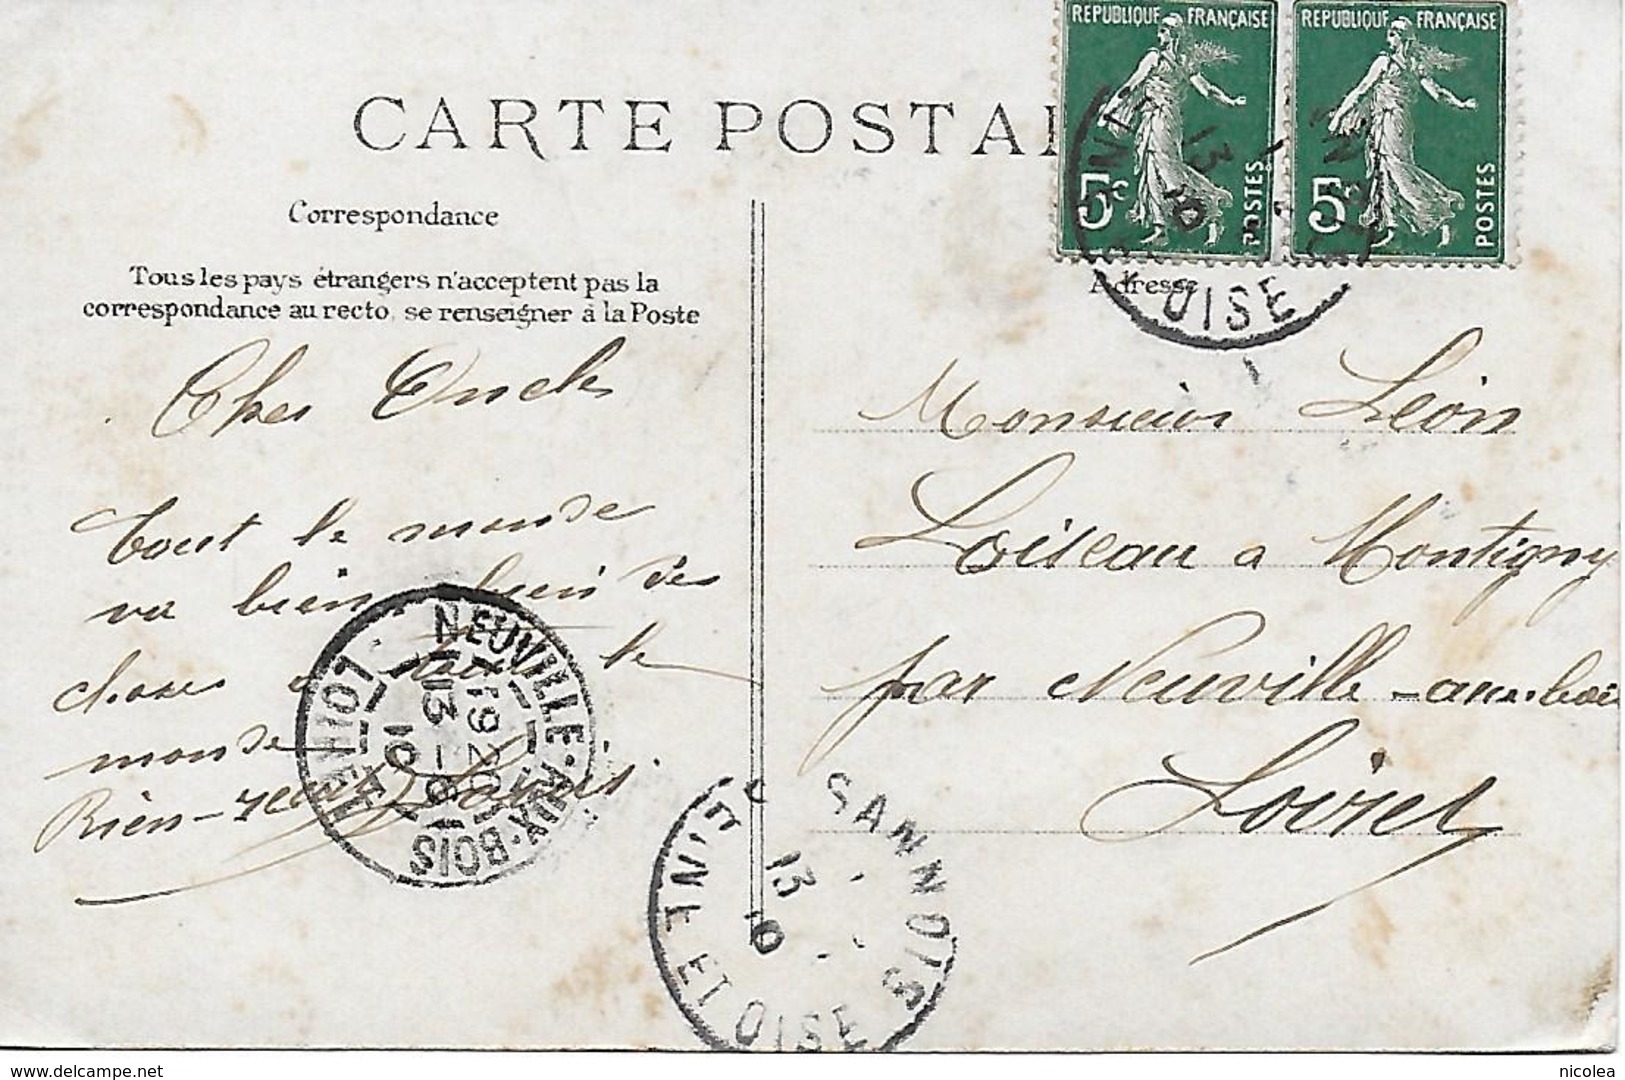 CARTE POSTAL
REPUBLIQUE FRANÇAISE
5c POSTES
REPUBLIQUE FRANÇAISE
5c POSTES
Correspondance
Tous les pays étrangers n'acceptent pas la
correspondance au recto, se renseigner à la Poste
Adresse
Cher Oncle
tout le monde
va bien, bien des
choses a tout le
monde
Rien Louis
Monsieur Léon
Loiseau a Montigny
par Neuville-aux-bois
Loiret
13 10
OISE
NEUVILLE-AUX-BOIS
19 20
13 -6
10
LOIRET
SANNOIS
13
10
SEINE ET OISE
delcampe.net
nicolea